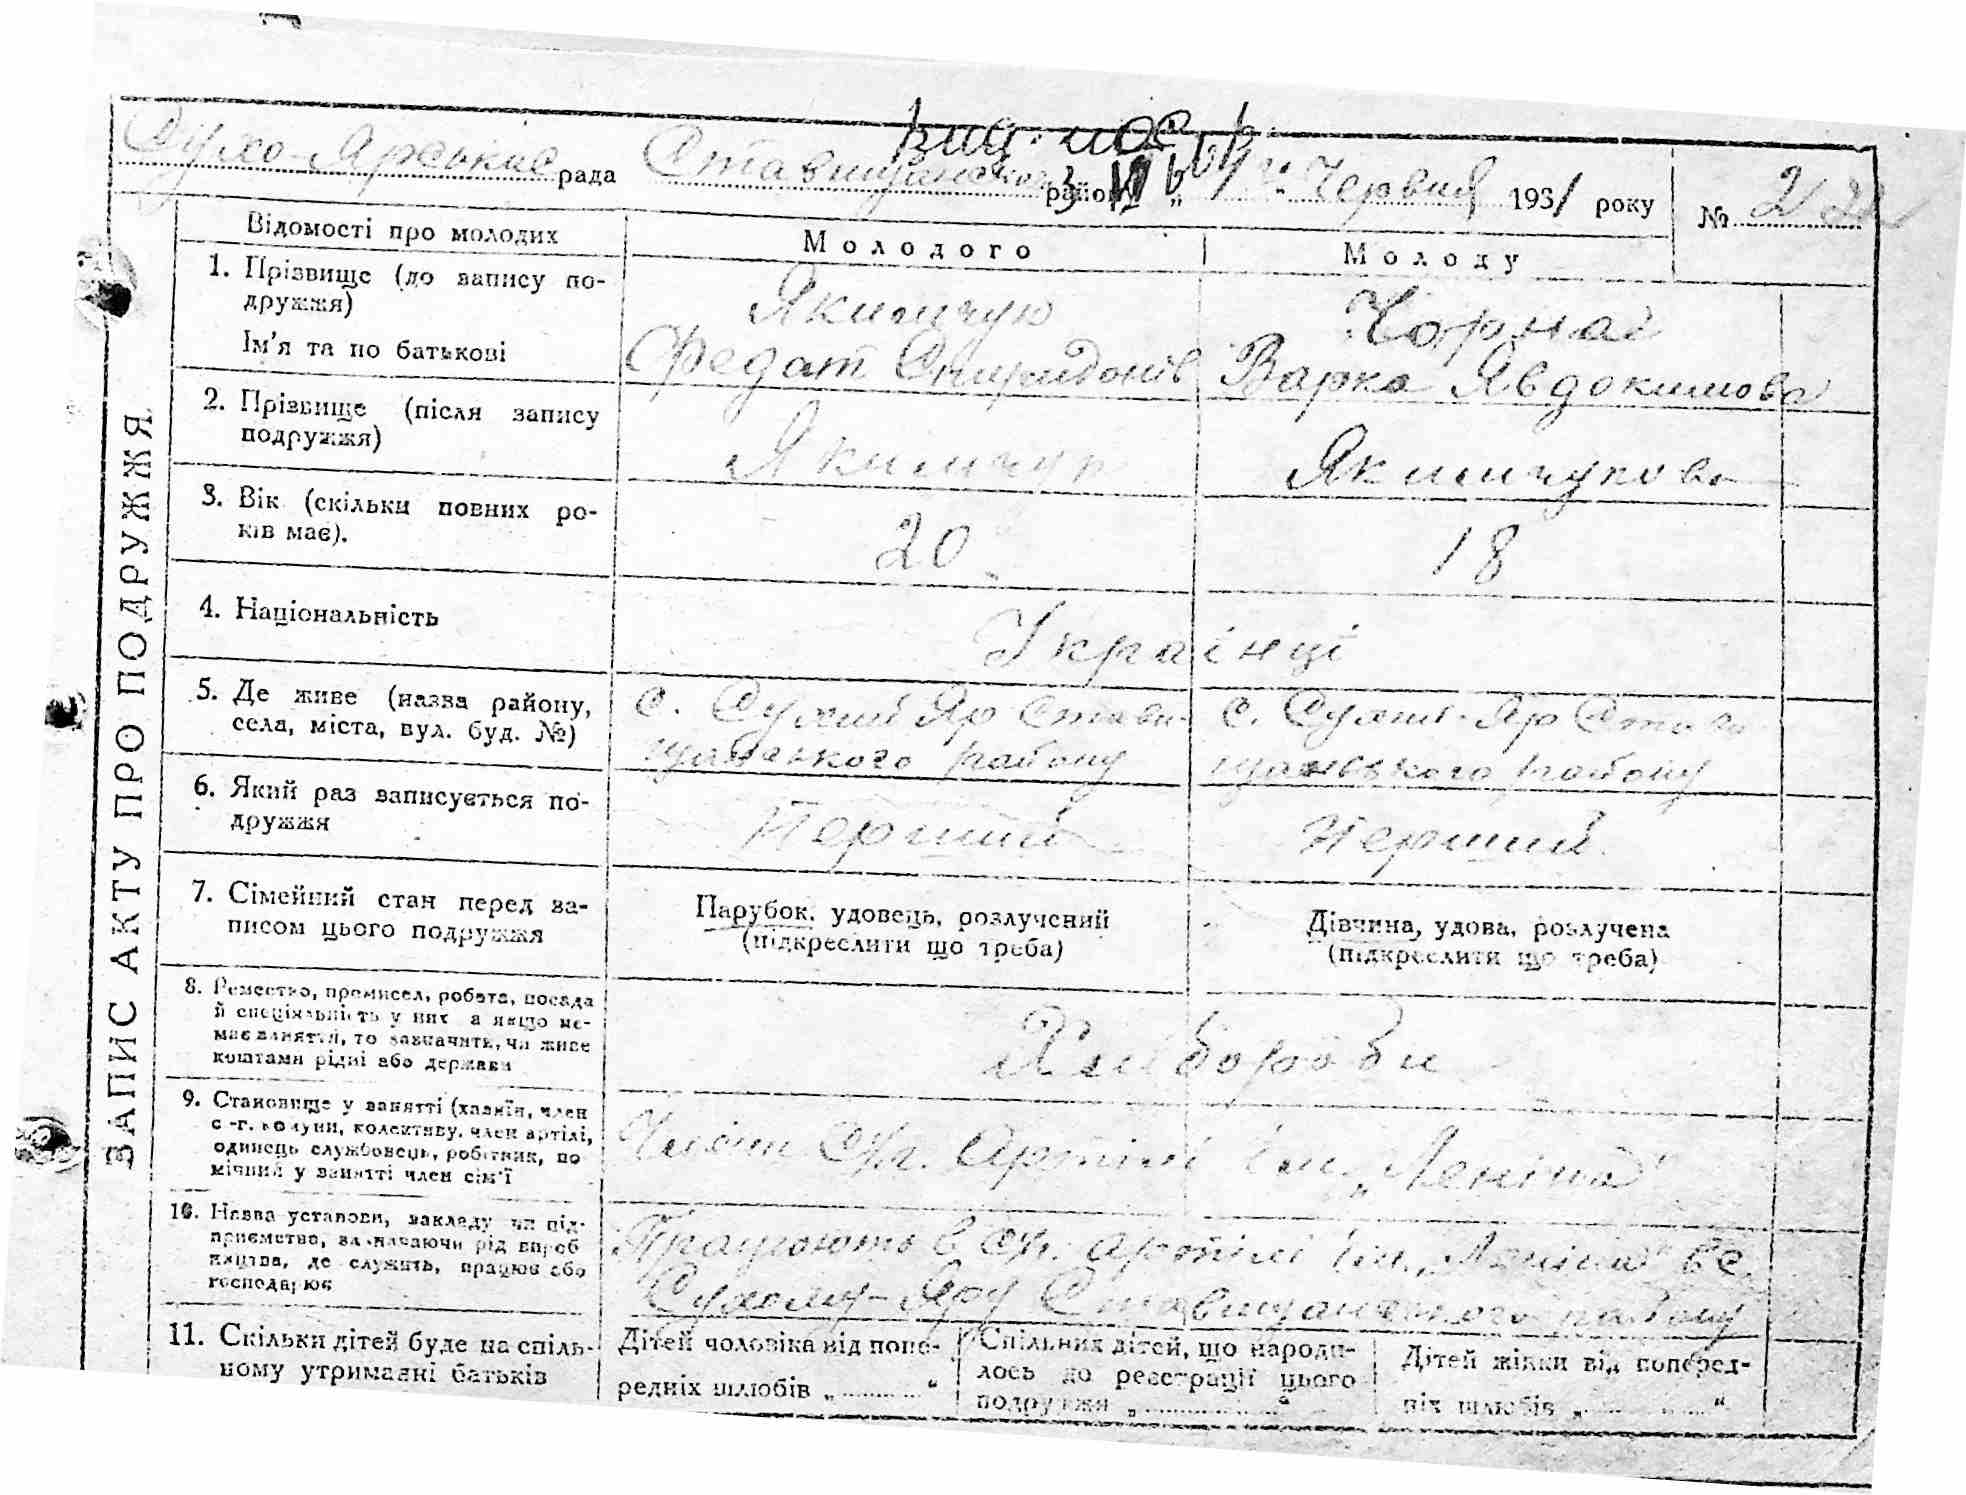 Сухо-Ярська рада Ставищанського району „ 4 " Червня 1931 року № 22
ЗАПИС АКТУ ПРО ПОДРУЖЖЯ
Відомості про молодих
Молодого
Молоду
1. Прізвище (до запису по-
дружжя)
Якимчук
Чорна
Ім'я та по батькові
Федот Спиридонів
Варка Явдокимова
2. Прізвище (після запису
подружжя)
Якимчук
Якимчукова
3. Вік (скільки повних ро-
ків має).
20
18
4. Національність
Українці
5. Де живе (назва району,
села, міста, вул. буд. №)
с. Сухий Яр Стави-
щанського району
с. Сухий-Яр Стави-
щанського району
6. Який раз записується по-
дружжя
Перший
Перший
7. Сімейний стан перед за-
писом цього подружжя
Парубок, удовець, розлучений
(підкреслити що треба)
Дівчина, удова, розлучена
(підкреслити що треба)
8. Ремество, промисел, робота, посада
й спеціяльність у них а якщо не-
має заняття, то зазначить, чи живе
коштами рідні або держави
Хлібороби
9. Становище у занятті (хазяїн, член
с.-г. комуни, колективу, член артілі,
одинець службовець, робітник, по
мічний у занятті член сім'ї
Члени с/г. артілі ім. „Леніна"
10. Назва установи, закладу чи під-
приємства, зазначаючи рід вироб
ництва, де служить, працює або
господарює
Працюють в с/г. артілі ім. „Леніна" в с.
Сухому-Яру Ставищанського району
11. Скільки дітей буде на спіль-
ному утриманні батьків
Дітей чоловіка від попе-
редніх шлюбів „ "
Спільних дітей, що народи-
лось до реєстрації цього
подружжя „ "
Дітей жінки від поперед-
ніх шлюбів „ "